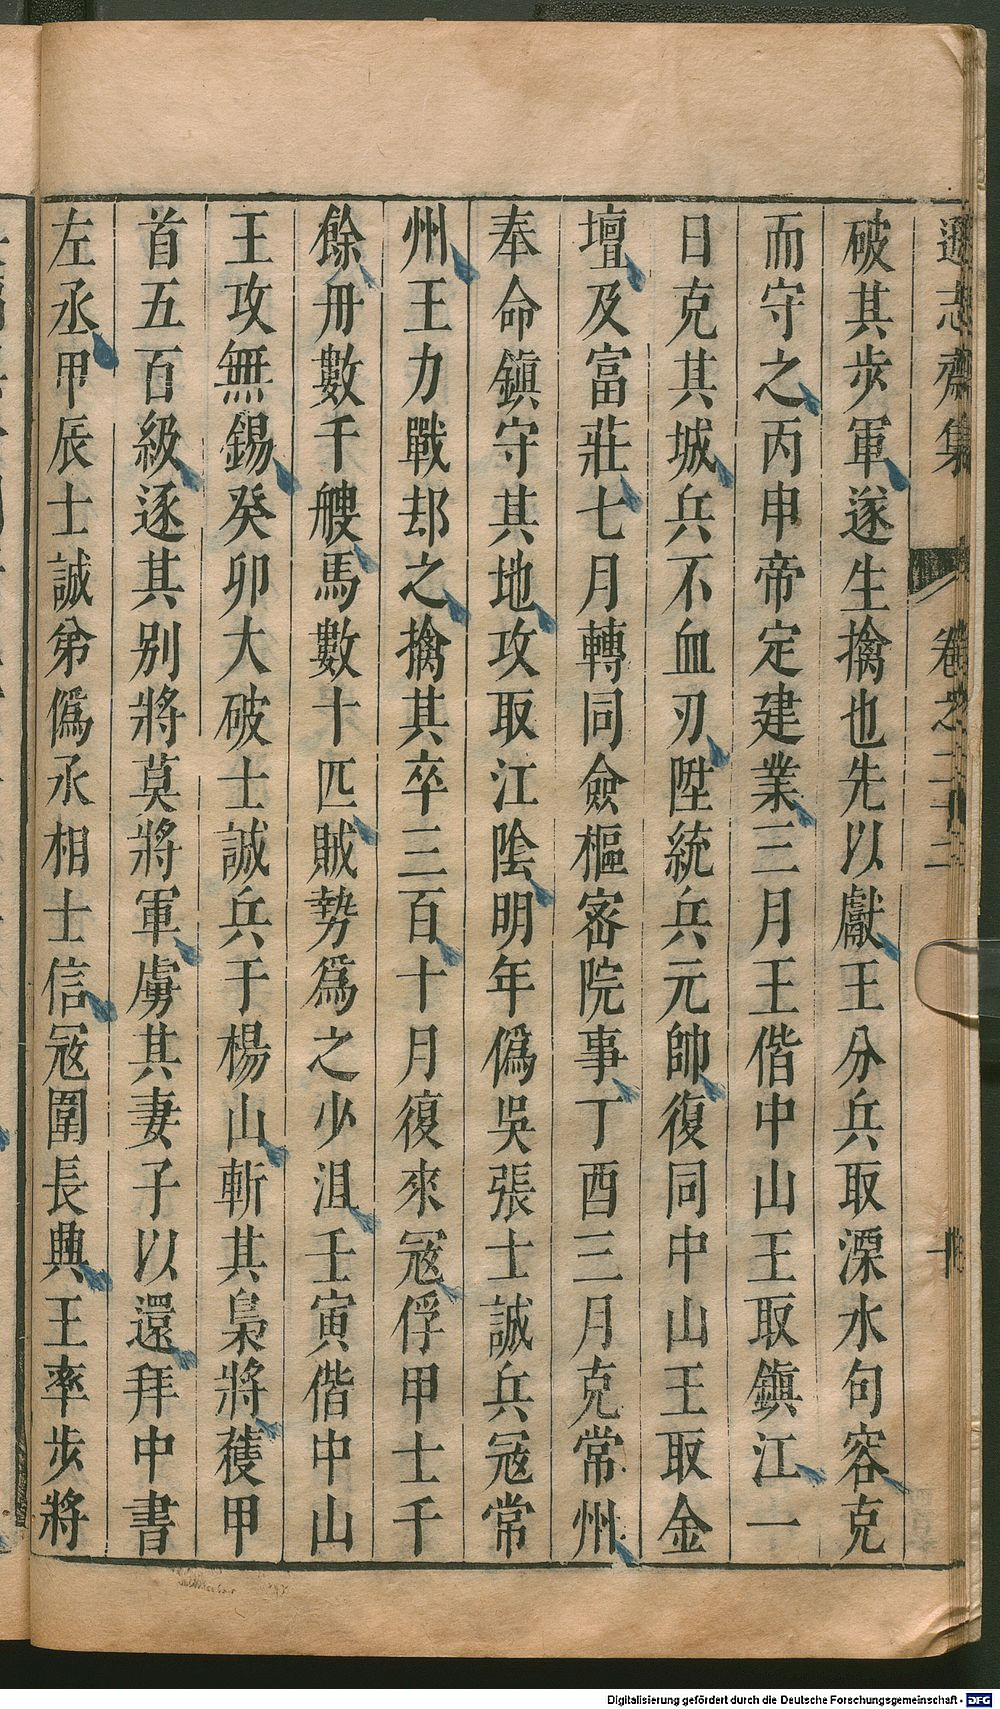 遜志齋集 卷之二十二
破其步軍遂生擒也先以獻王分兵取溧水句容克
而守之丙申帝定建業三月王偕中山王取鎮江一
日克其城兵不血刃陞統兵元帥復同中山王取金
壇及富莊七月轉同僉樞密院事丁酉三月克常州
奉命鎮守其地攻取江陰明年僞吳張士誠兵冦常
州王力戰却之擒其卒三百十月復來冦俘甲士千
餘舟數千艘馬數十匹賊勢爲之少沮壬寅偕中山
王攻無錫癸卯大破士誠兵于楊山斬其梟將獲甲
首五百級逐其別將莫將軍虜其妻子以還拜中書
左丞甲辰士誠弟僞丞相士信冦圍長興王率步將
Digitalisierung gefördert durch die Deutsche Forschungsgemeinschaft - DFG